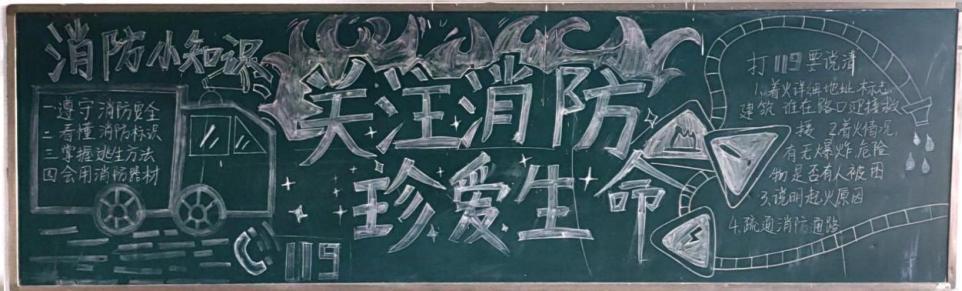 消防小知识
一遵守消防安全
二看懂消防标识
三掌握逃生方法
四会用消防器材
119
关注消防
珍爱生命
打119要说清
1.着火详细地址标志
建筑 谁在路口迎接救
援 2.着火情况
有无爆炸危险
物是否有人被困
3.说明起火原因
4.疏通消防通路